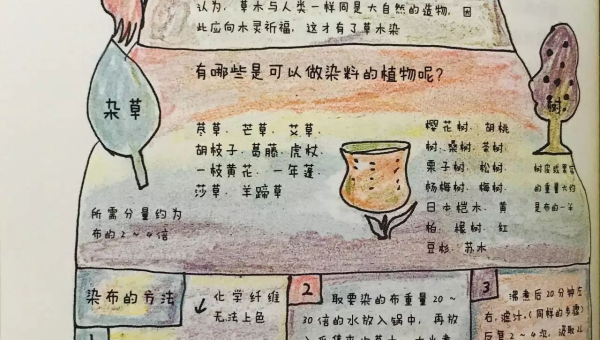 认为，草木与人类一样同是大自然的造物，因
此应向木灵祈福，这才有了草木染
有哪些是可以做染料的植物呢？
杂草
荩草、芒草、艾草、
胡枝子、葛藤、虎杖、
一枝黄花、一年蓬
莎草、羊蹄草
所需分量约为
布的2～4倍
樱花树、胡桃
树、桑树、茶树
栗子树、松树、
杨梅树、梅树、
日本桤木、黄
柏、橡树、红
豆杉、苏木
树
树皮或果实
的重量大约
是布的一半
染布的方法
化学纤维
无法上色
1
2
取要染的布重量20～
30倍的水放入锅中，再放
3
沸煮后20分钟左
右，滤汁。（同样的步骤）
反复2～4次，汲取以